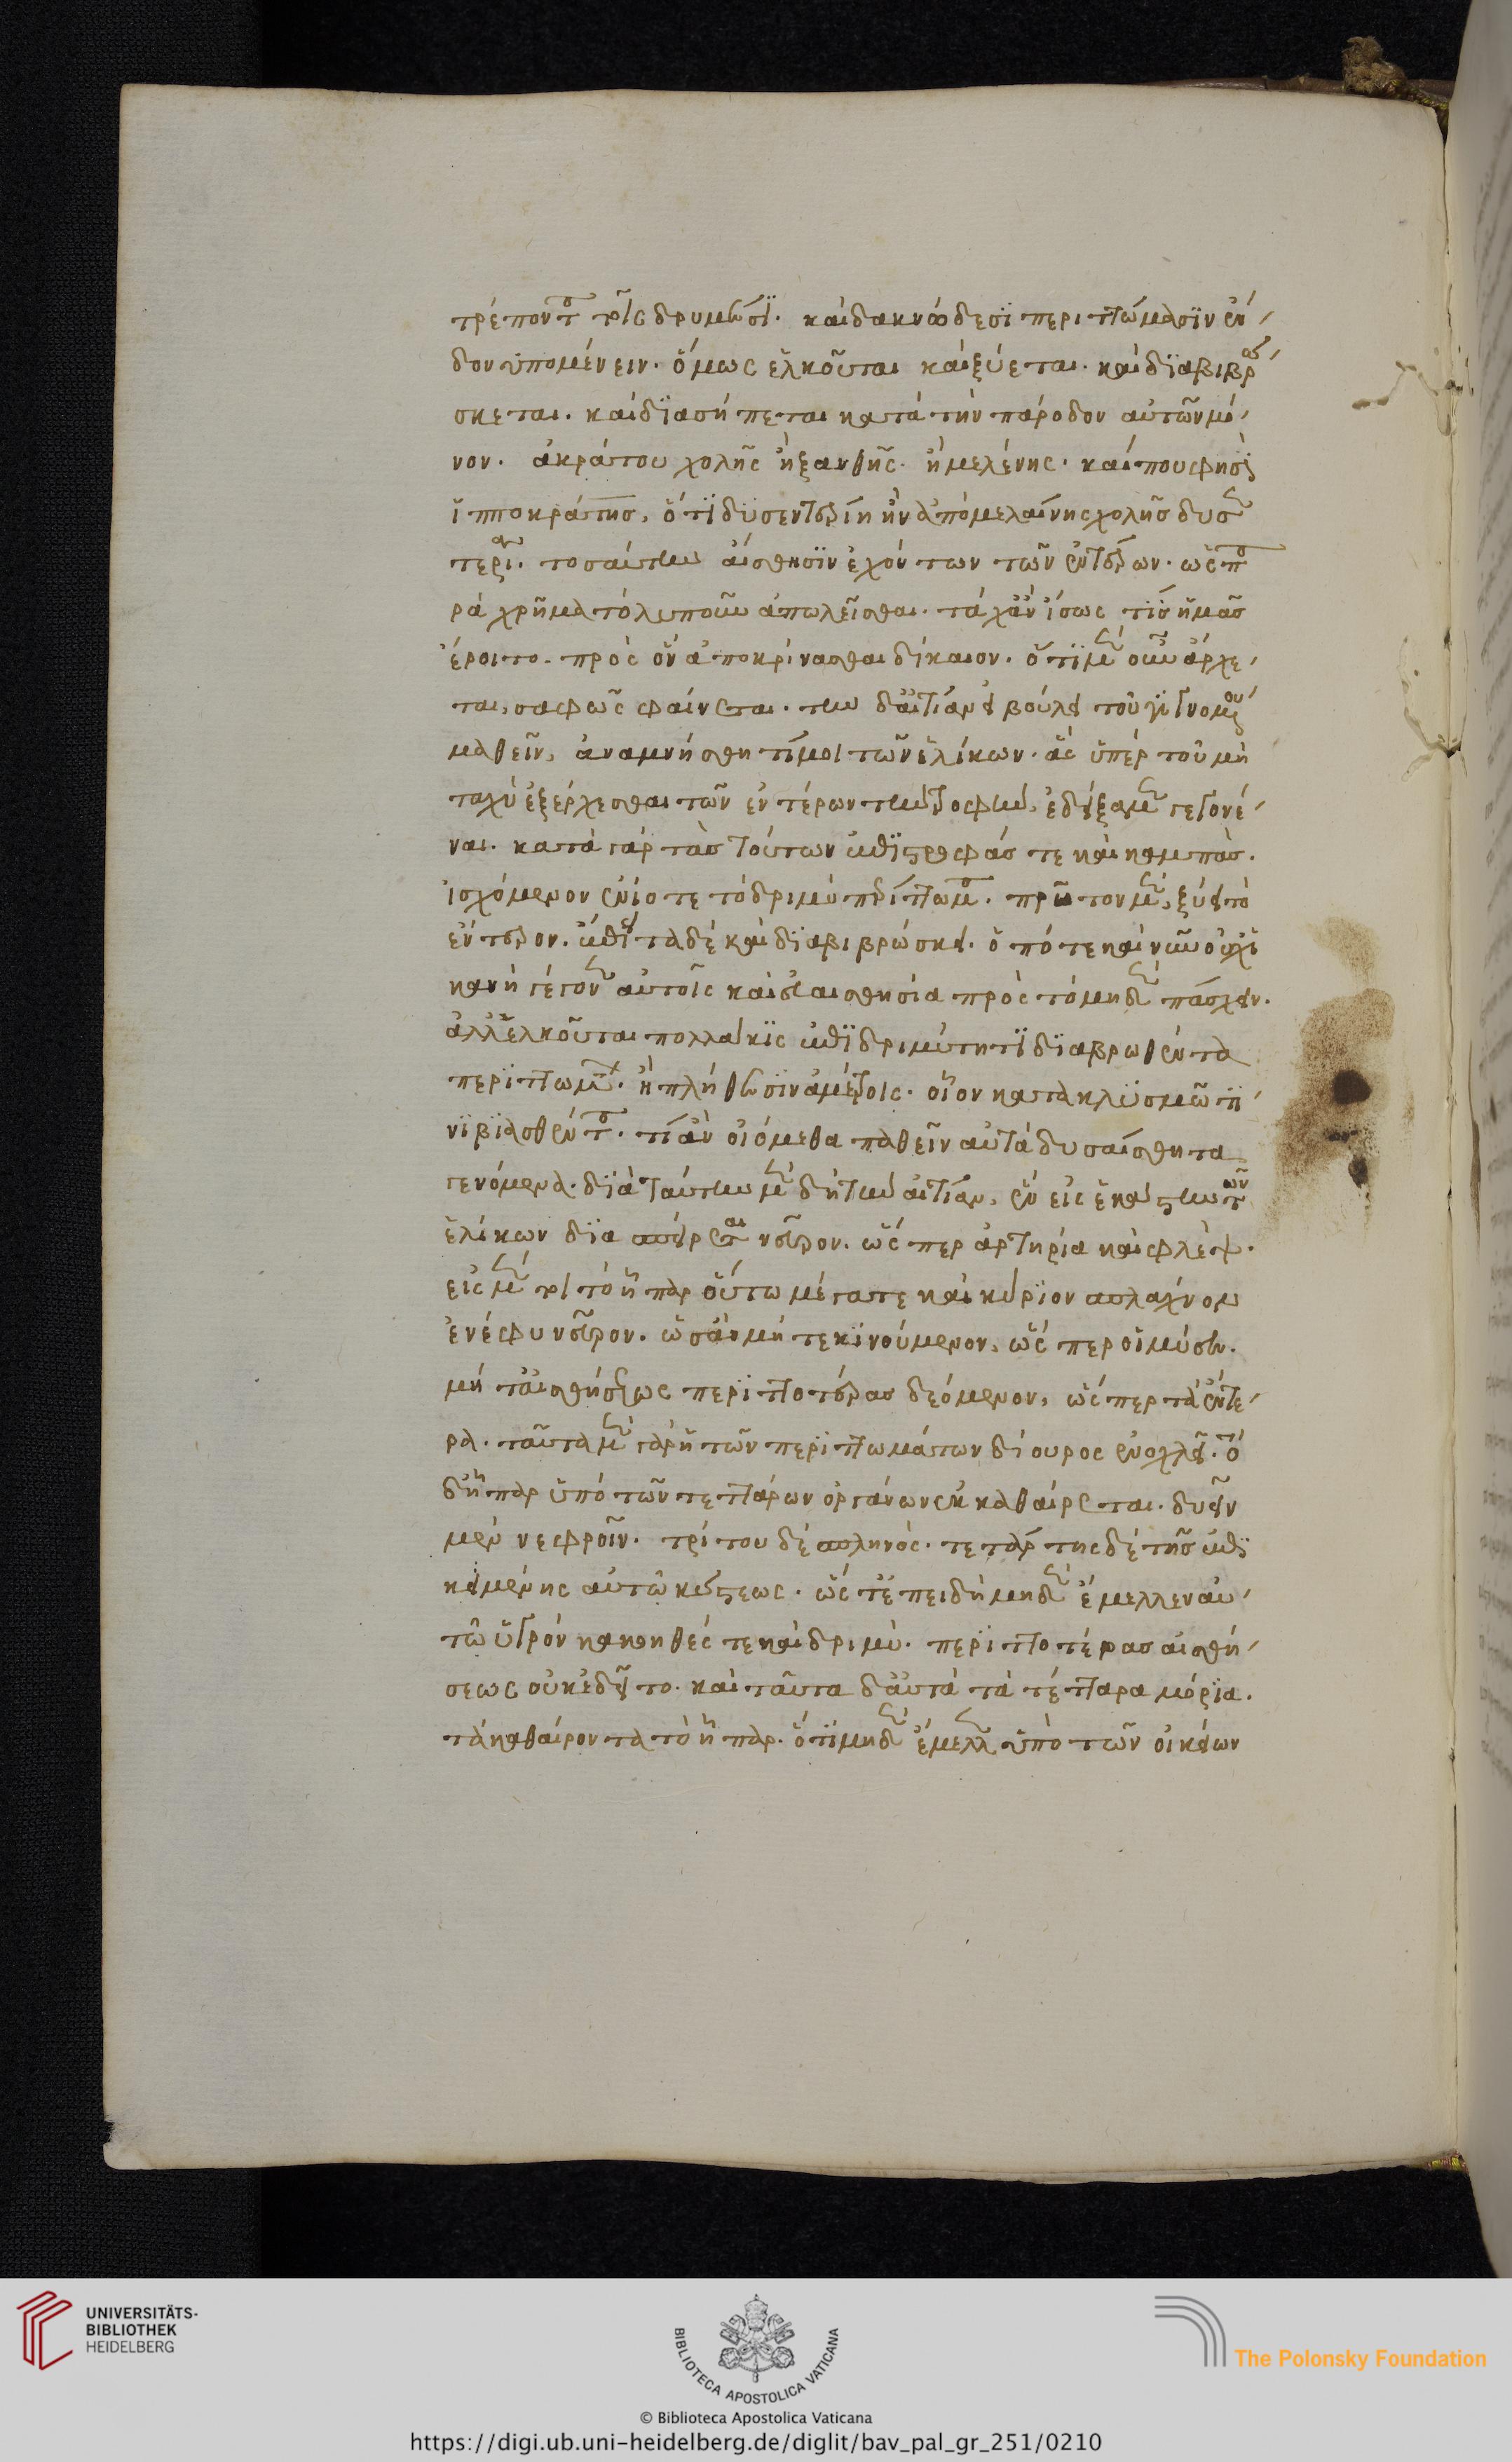 τρέποντο τοῖς δρυμέσϊ. καὶ δακνώδεσϊ περιττώμασϊν ἔν
δον ὑπομένειν. ὅμως ἑλκοῦται καὶ ξύεται. καὶ δϊαβιβρώ
σκεται. καὶ δϊασήπεται κατὰ τὴν πάροδον αὐτῶν μό
νον. ἀκράτου χολῆς ἢ ξανθῆς. ἢ μελένης. καί που φησὶ
ἱπποκράτησ, ὅτϊ δυσεντερίη ἢν ἀπὸ μελαίνης χολῆσ δυσεν
τερίαν. τοσαύτην αἴσθησϊν ἐχόντων τῶν ἐντέρων. ὡς πο
ρὰ χρῆμα τὸ λυποῦν ἀπωλεῖσθαι. τάχ ἂν ἴσως τϊσ ἡμᾶσ
ἔροιτο. πρὸς ὃν ἀποκρίνασθαι δίκαιον. ὅτϊ μὲν οὖν ἄρχε
ται, σαφῶς φαίνεται. τὴν δ αἰτίαν εἰ βούλει τοῦ γϊγνομένου
μαθεῖν, ἀναμνήσθητί μοι τῶν ἑλίκων. ἃς ὑπὲρ τοῦ μὴ
ταχὺ ἐξέρχεσθαι τῶν ἐντέρων τὴν τροφὴν, ἐδείξαμεν γεγονέ
ναι. κατὰ γὰρ τὰσ τούτων ἐπϊστροφάσ τε καὶ καμπὰσ.
ἰσχόμενον ἐνίοτε τὸ δριμὺ περίττωμα. πρῶτον μὲν, ξύει τὸ
ἔντερον. ἔπϊτα δὲ καὶ δϊαβιβρώσκει. ὁπότε καὶ νῦν οὐχὶ
κανὴ γέγονεν αὐτοῖς καὶ δυσαισθησία πρὸς τὸ μηδὲν πάσχειν.
ἀλλ ἑλκοῦται πολλάκϊς ἐπϊ δριμύτητϊ δϊαβρωθέντα
περϊττωμάτων. ἢ πλήθεσϊν ἀμέτροις. οἷον κατακλυσμῶ τϊ
νϊ βϊασθέντα. τί ἂν οἰόμεθα παθεῖν αὐτὰ δυσαίσθητα
γενόμενα. δϊὰ ταύτην μὲν δὴ τὴν αἰτίαν, ἓν εἰς ἑκάστην τῶν
ἑλίκων δϊασπείρεται νεῦρον. ὥσπερ ἀρτηρία καὶ φλέψ.
εἰς μέν τοι τὸ ἧπαρ οὕτω μέγα τε καὶ κύρϊον σπλάχνον
ἐνέφυ νεῦρον. ὡσὰν μήτε κϊνούμενον, ὥσπερ οἱ μύσεσ.
μήτ αἰσθήσεως περϊττοτέρασ δεόμενον, ὥσπερ τὰ ἔντε
ρα. ταῦτα μὲν γὰρ ἡ τῶν περϊττωμάτων δίουρος ἐνοχλεῖ. τὸ
δ ἧπαρ ὑπὸ τῶν τεττάρων ὀργάνων ἐκκαθαίρεται. δυεῖν
μὲν νεφροῖν. τρίτου δὲ σπληνὸς. τετάρτης δὲ τῆσ ἐπϊ
κειμένης αὐτῶ κύστεως. ὥς τ ἐπειδὴ μηδὲν ἔμελλεν αὐ
τῶ ὑγρὸν κακοηθές τε καὶ δριμὺ. περϊττοτέρασ αἰσθή
σεως οὐκ ἐδεῖτο. καὶ ταῦτα δ αὐτὰ τὰ τέτταρα μόρϊα.
τὰ καθαίροντα τὸ ἧπαρ. ὅτϊ μηδὲν ἔμελλεν ὑπὸ τῶν οἰκείων
UNIVERSITÄTS-
BIBLIOTHEK
HEIDELBERG
BIBLIOTECA APOSTOLICA VATICANA
The Polonsky Foundation
© Biblioteca Apostolica Vaticana
https://digi.ub.uni-heidelberg.de/diglit/bav_pal_gr_251/0210